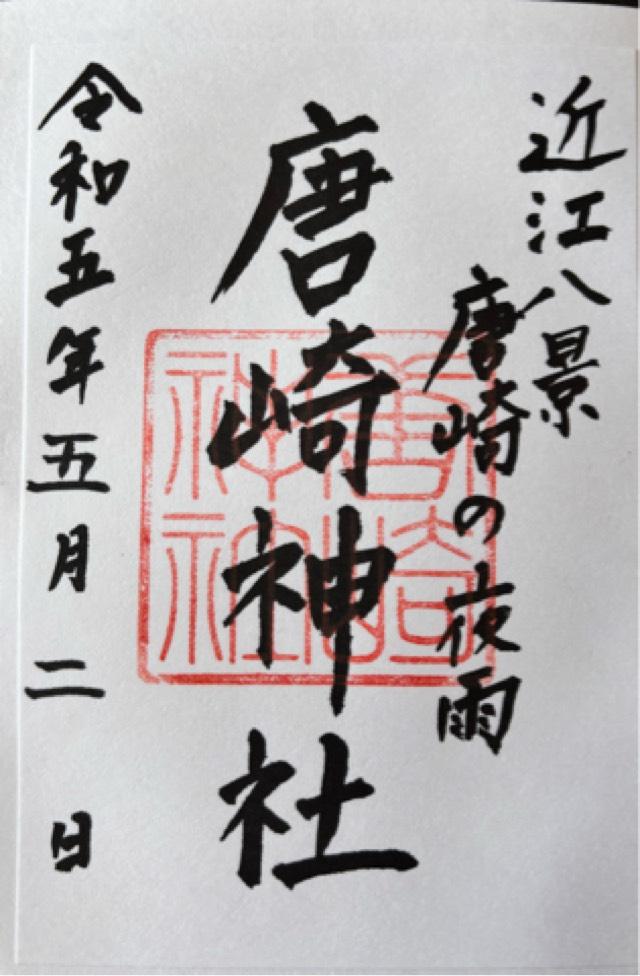 近江八景
唐崎の夜雨
唐崎神社
唐崎
神社
令和五年五月二日